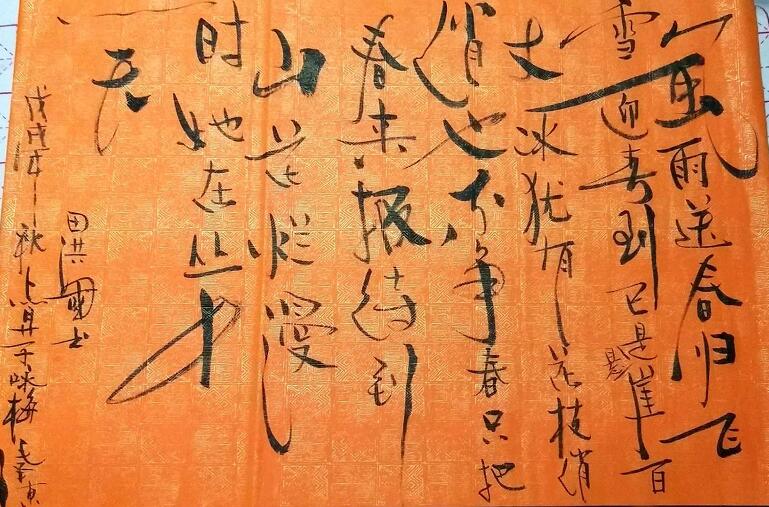 风雨送春归飞
雪迎春到已是悬崖百
丈冰犹有花枝俏
俏也不争春只把
春来报待到
山花烂漫
时她在丛中
笑
田洪國书
戊戌年秋卜算子咏梅毛泽东